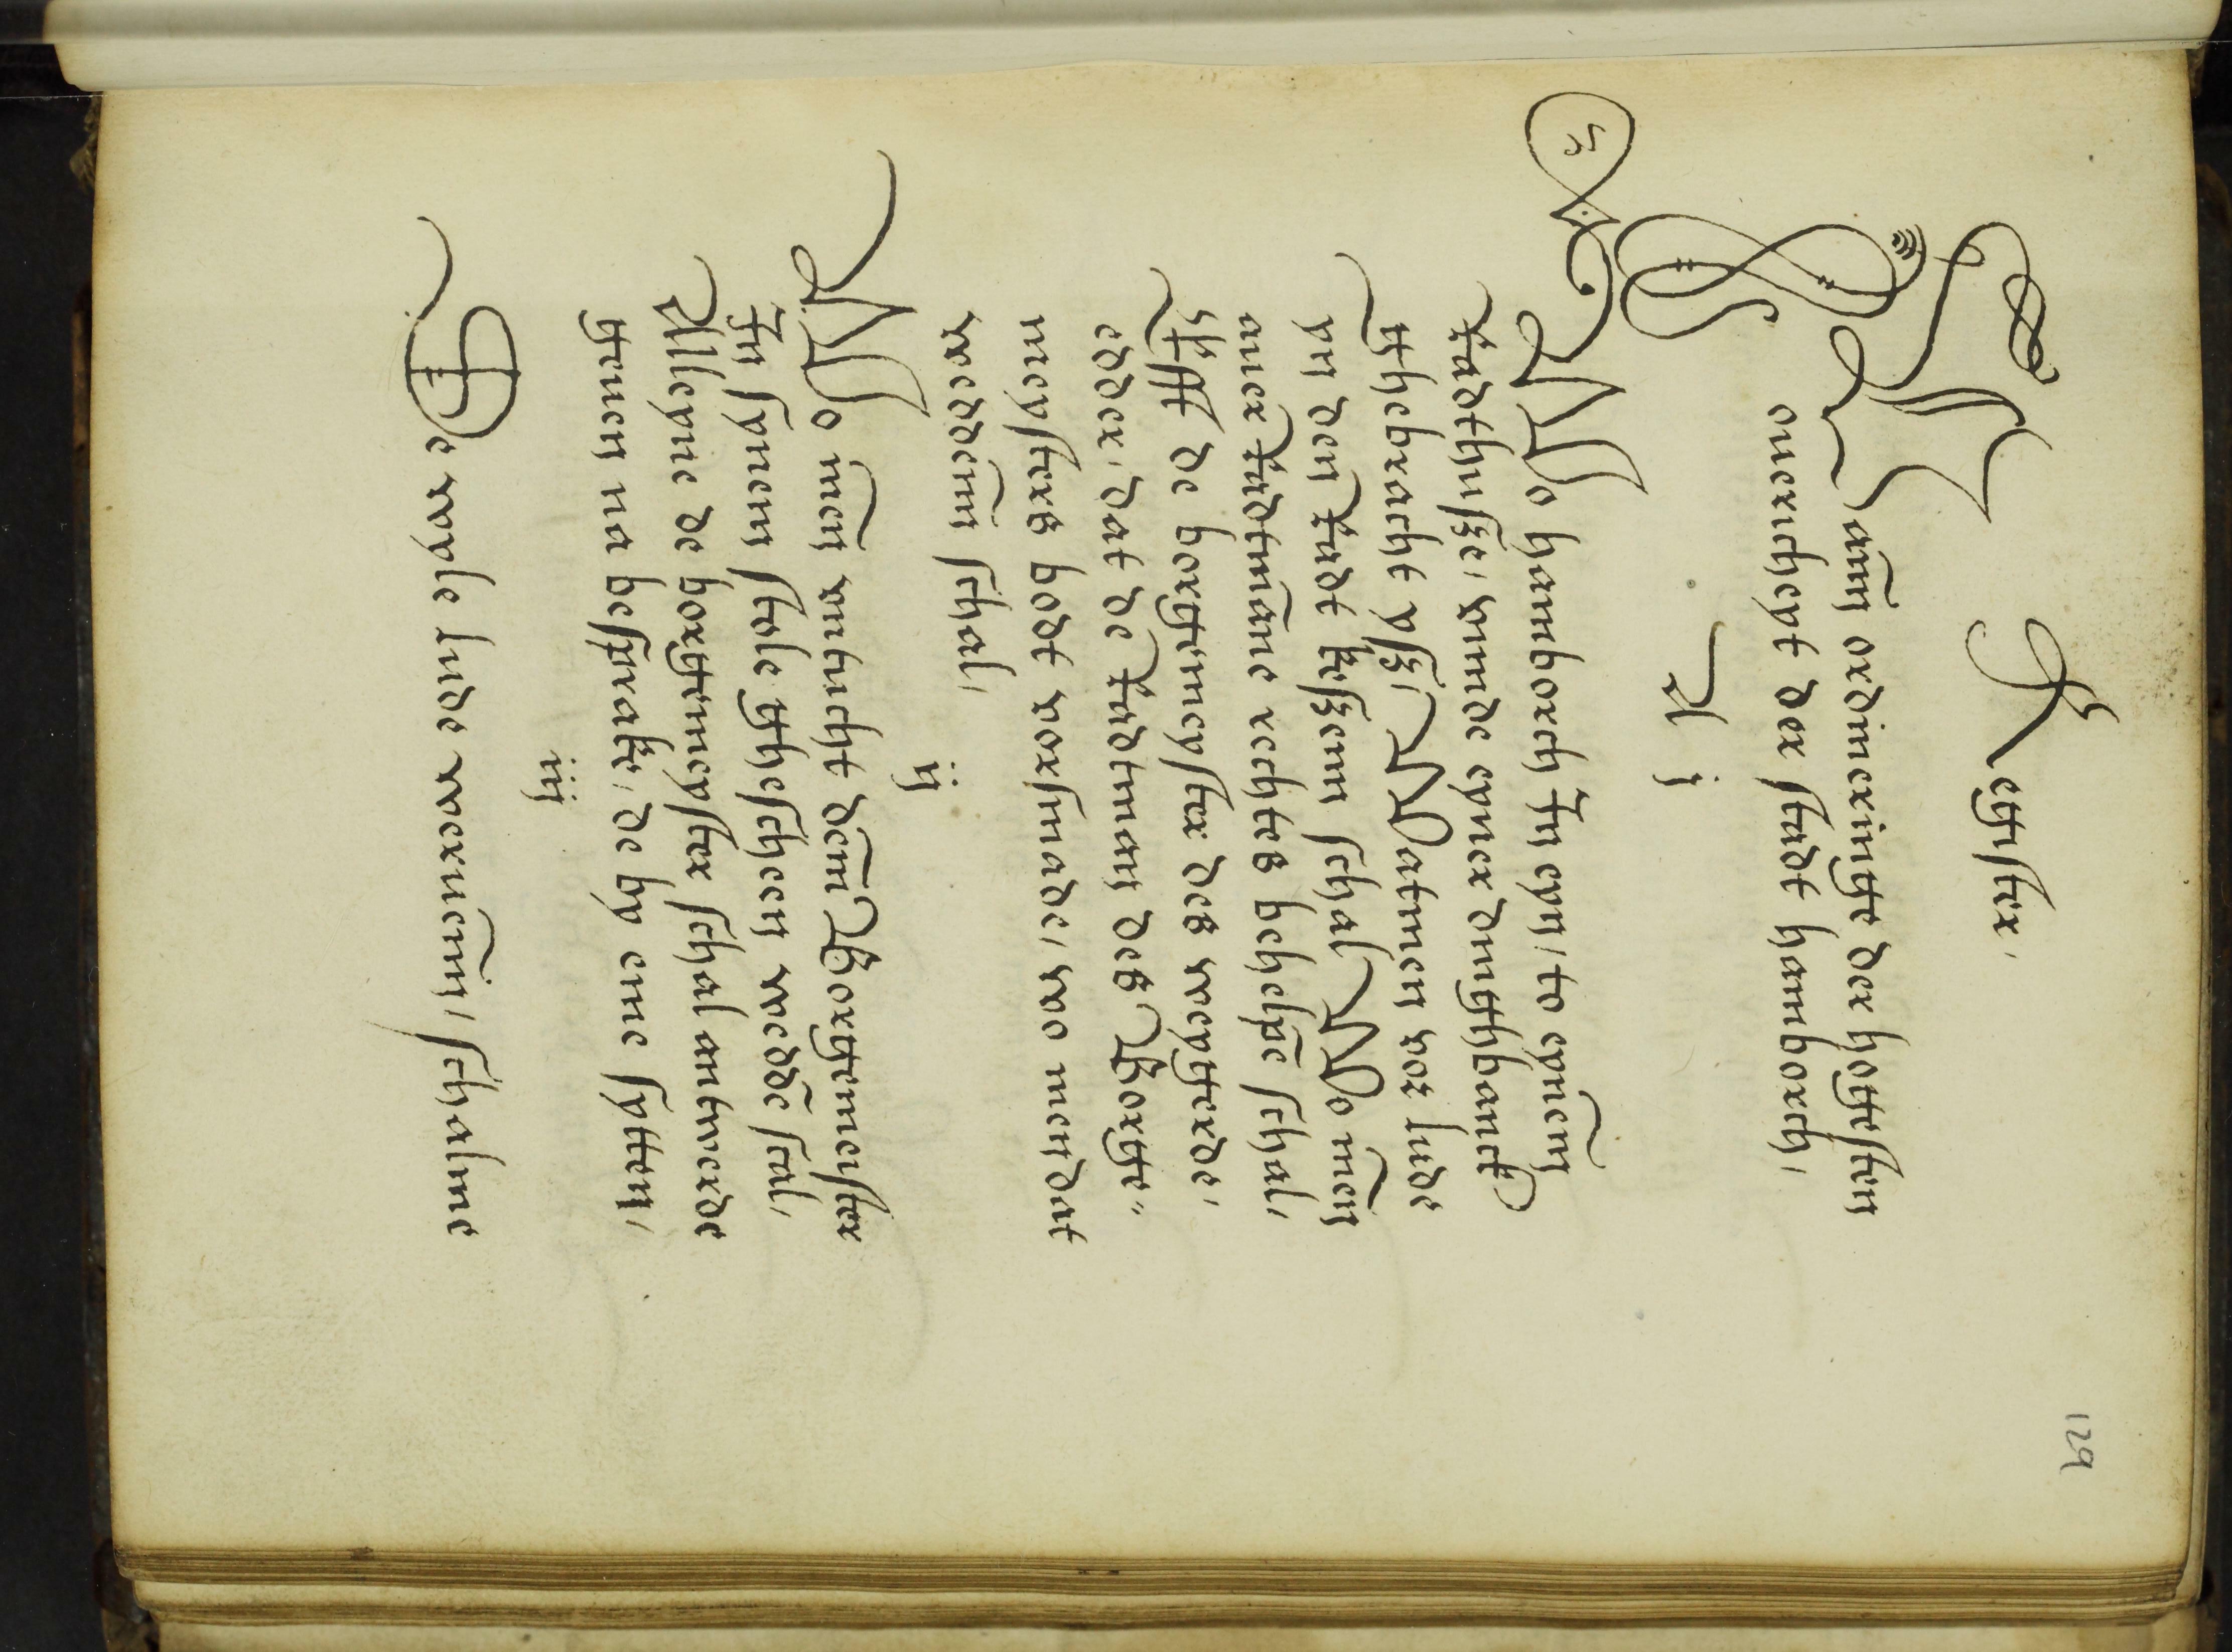 Register,
129
Vam ordineringe der hogesten
ouericheyt der stadt hamborch,
A j
To hamborch In eyn, to eynem
Radthusze, vnnde eyner dingkbanck
gehebracht ysz, Watmen vor lude
yn den Radt keszenn schal Wo men
aner Radtmane rechtes behelpe schal,
Ifft de borgemeyster des weygerde,
edder, dat de Radtman des Borge„
meysters bodt vorsmade, wo men dat
weddenn schal,
ij
o men vnnucht dem Borgemeister
In synem stole wedde scal,
Alleyne de borgermeyster schal antwerde
genen na besprake, de by eme sytten,
iij
e wyle lude schalme